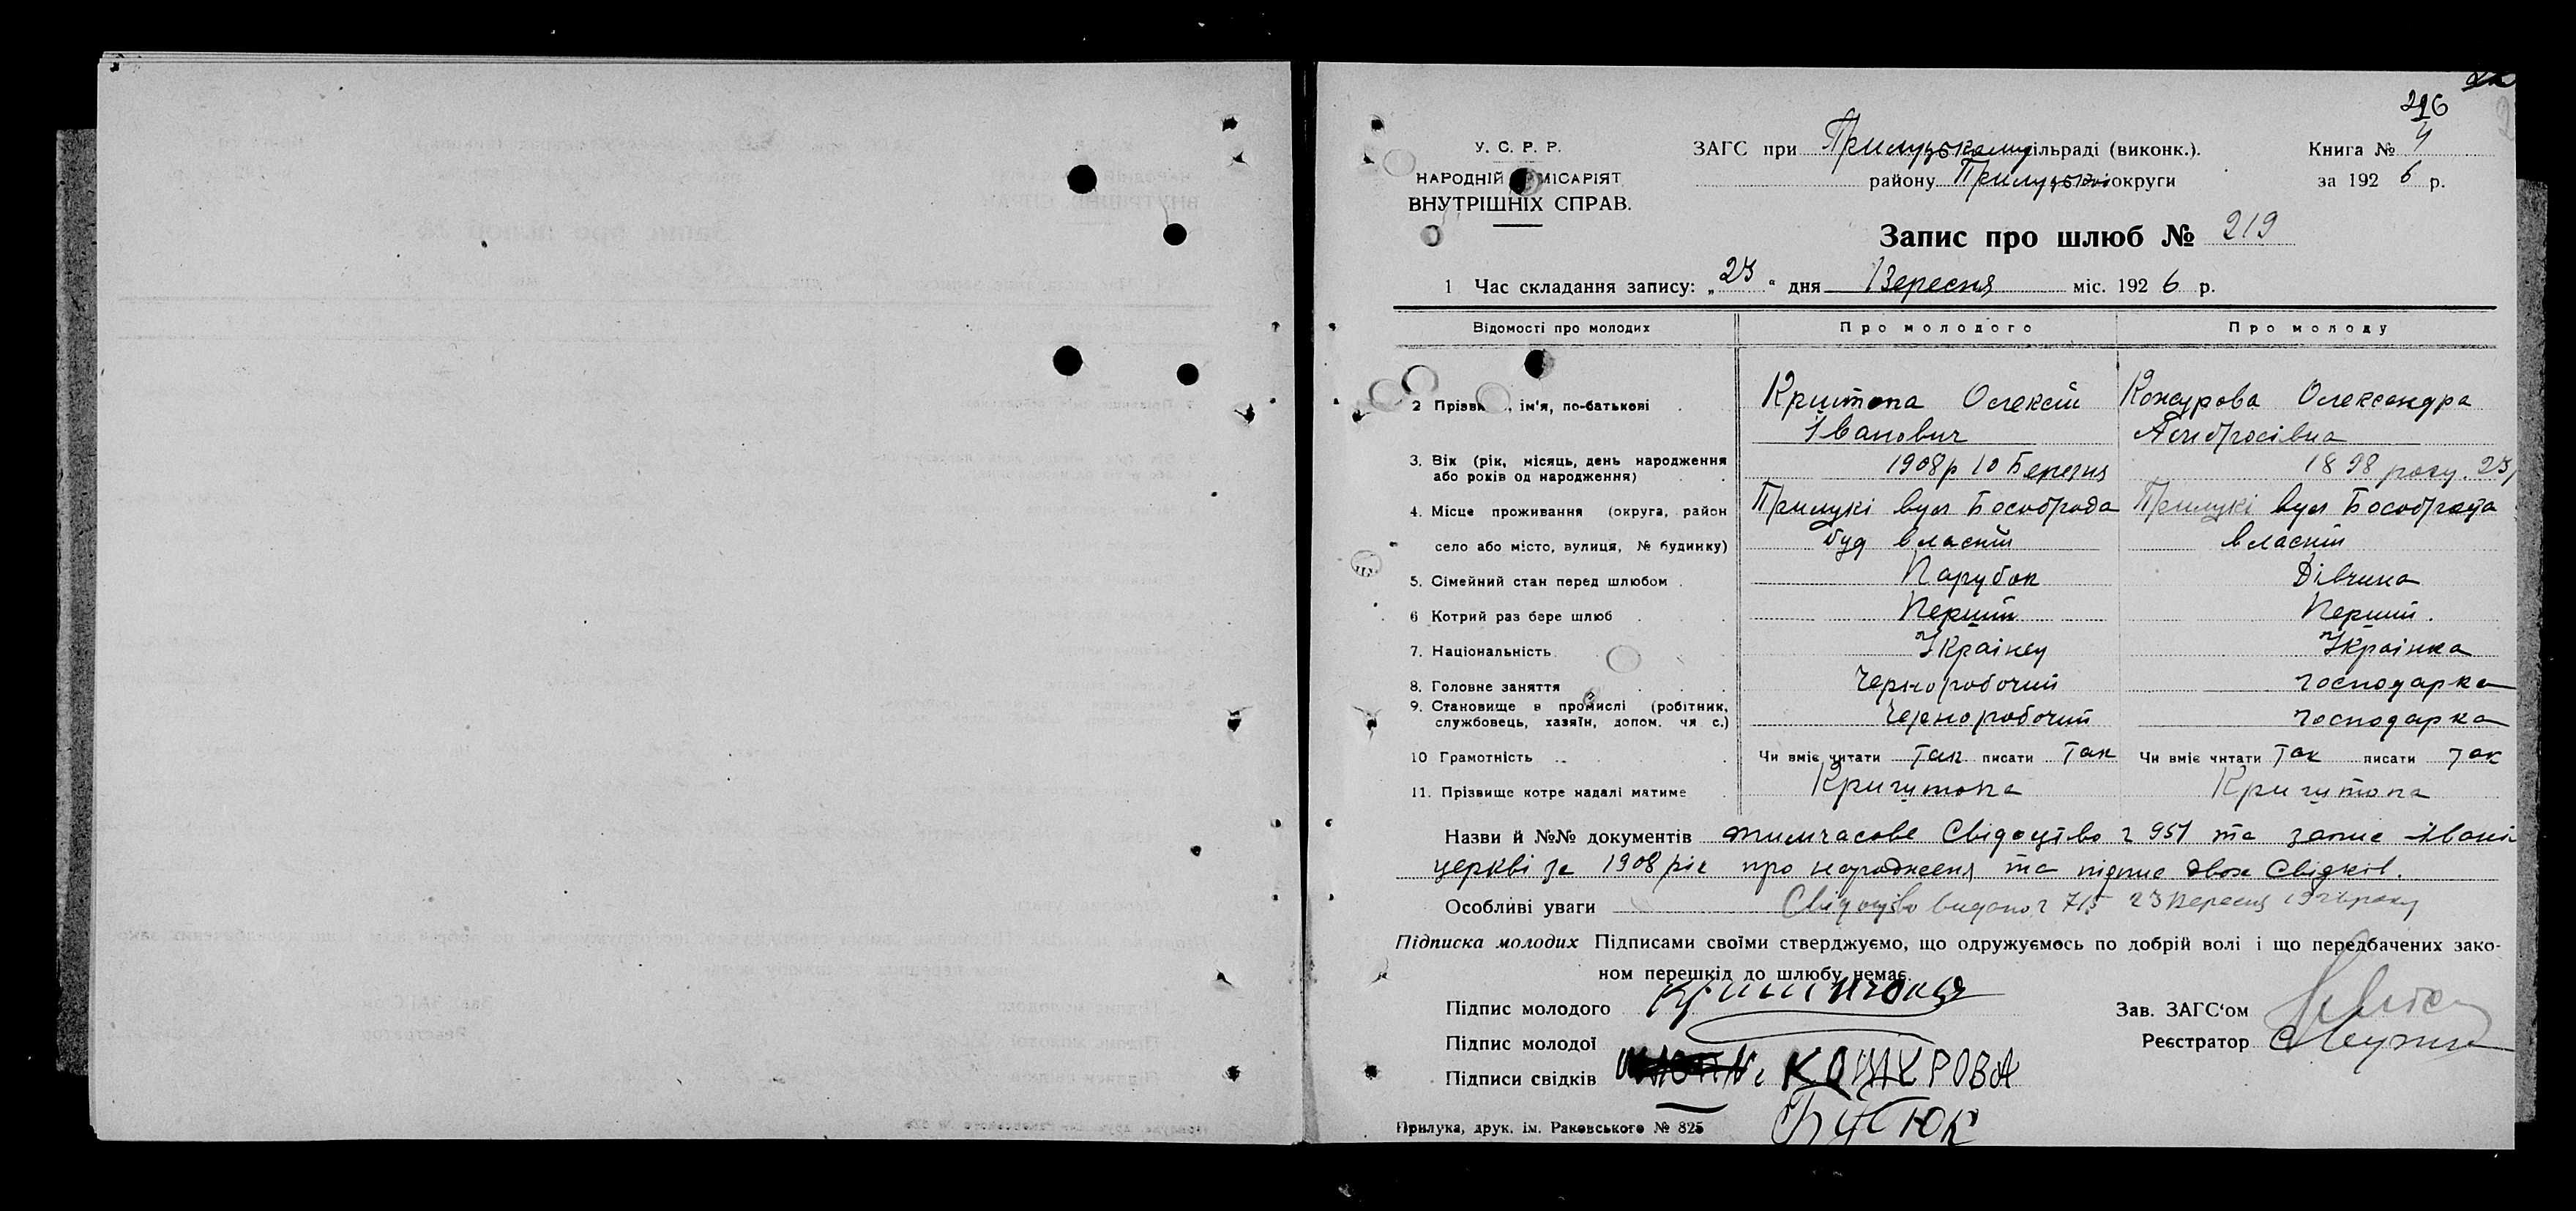 226
У. С. Р. Р.
ЗАГС при Прилуцькому сільраді (виконк.).
Книга № 4
НАРОДНІЙ КОМІСАРІЯТ
району Прилуцької округи
за 1926 р.
ВНУТРІШНІХ СПРАВ.
Запис про шлюб № 219
1 Час складання запису: „23“ дня Вересня міс. 1926 р.
Відомості про молодих Про молодого Про молоду
2 Прізви , ім'я, по-батькові Криштопа Олексій Кожурова Олександра
Іванович Амбросівна
3. Вік (рік, місяць, день народження 1908р 10 Березня 1898 року. 23
або років од народження)
4. Місце проживання (округа, район Прилукі вул Босоврода Прилукі вул Босоврода
село або місто, вулиця, № будинку) буд власний власний
5. Сімейний стан перед шлюбом Парубок Дівчина
6 Котрий раз бере шлюб Перший Перший.
7. Національність Українец Українка
8. Головне заняття Черноробочий господарка
9. Становище в промислі (робітник,
службовець, хазяїн, допом. чл. с.) Черноробочий господарка
10 Грамотність Чи вміє читати Так писати Так Чи вміє читати Так писати Так
11. Прізвище котре надалі матиме Криштопа Криштопа
Назви й №№ документів тимчасове Свідоцтво ч 951 та запис Івані
церкві за 1908 рік про народження та підпис двох Свідків.
Особливі уваги Свідоцтво видано ч 715 23 Вересня 1926 року
Підписка молодих Підписами своїми стверджуємо, що одружуємось по добрій волі і що передбачених зако-
ном перешкід до шлюбу немає.
Підпис молодого Криштопа
Зав. ЗАГС‘ом
Підпис молодої
Реєстратор
Підписи свідків КОЖУРОВА
Прилука, друк. ім. Раковського № 825